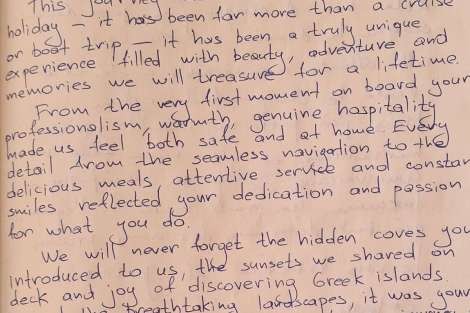 This journey
holiday, – it has been far more than a cruise
or boat trip – it has been a truly unique
experience filled with beauty, adventure and
memories we will treasure for a lifetime.
From the very first moment on board your
professionalism, warmth, genuine hospitality
made us feel both safe and at home Every
detail from the seamless navigation to the
delicious meals attentive service and constan
smiles reflected your dedication and passion
for what you do.
We will never forget the hidden coves you
introduced to us, the sunsets we shared on
deck and joy of discovering Greek islands
breathtaking landscapes, it was your